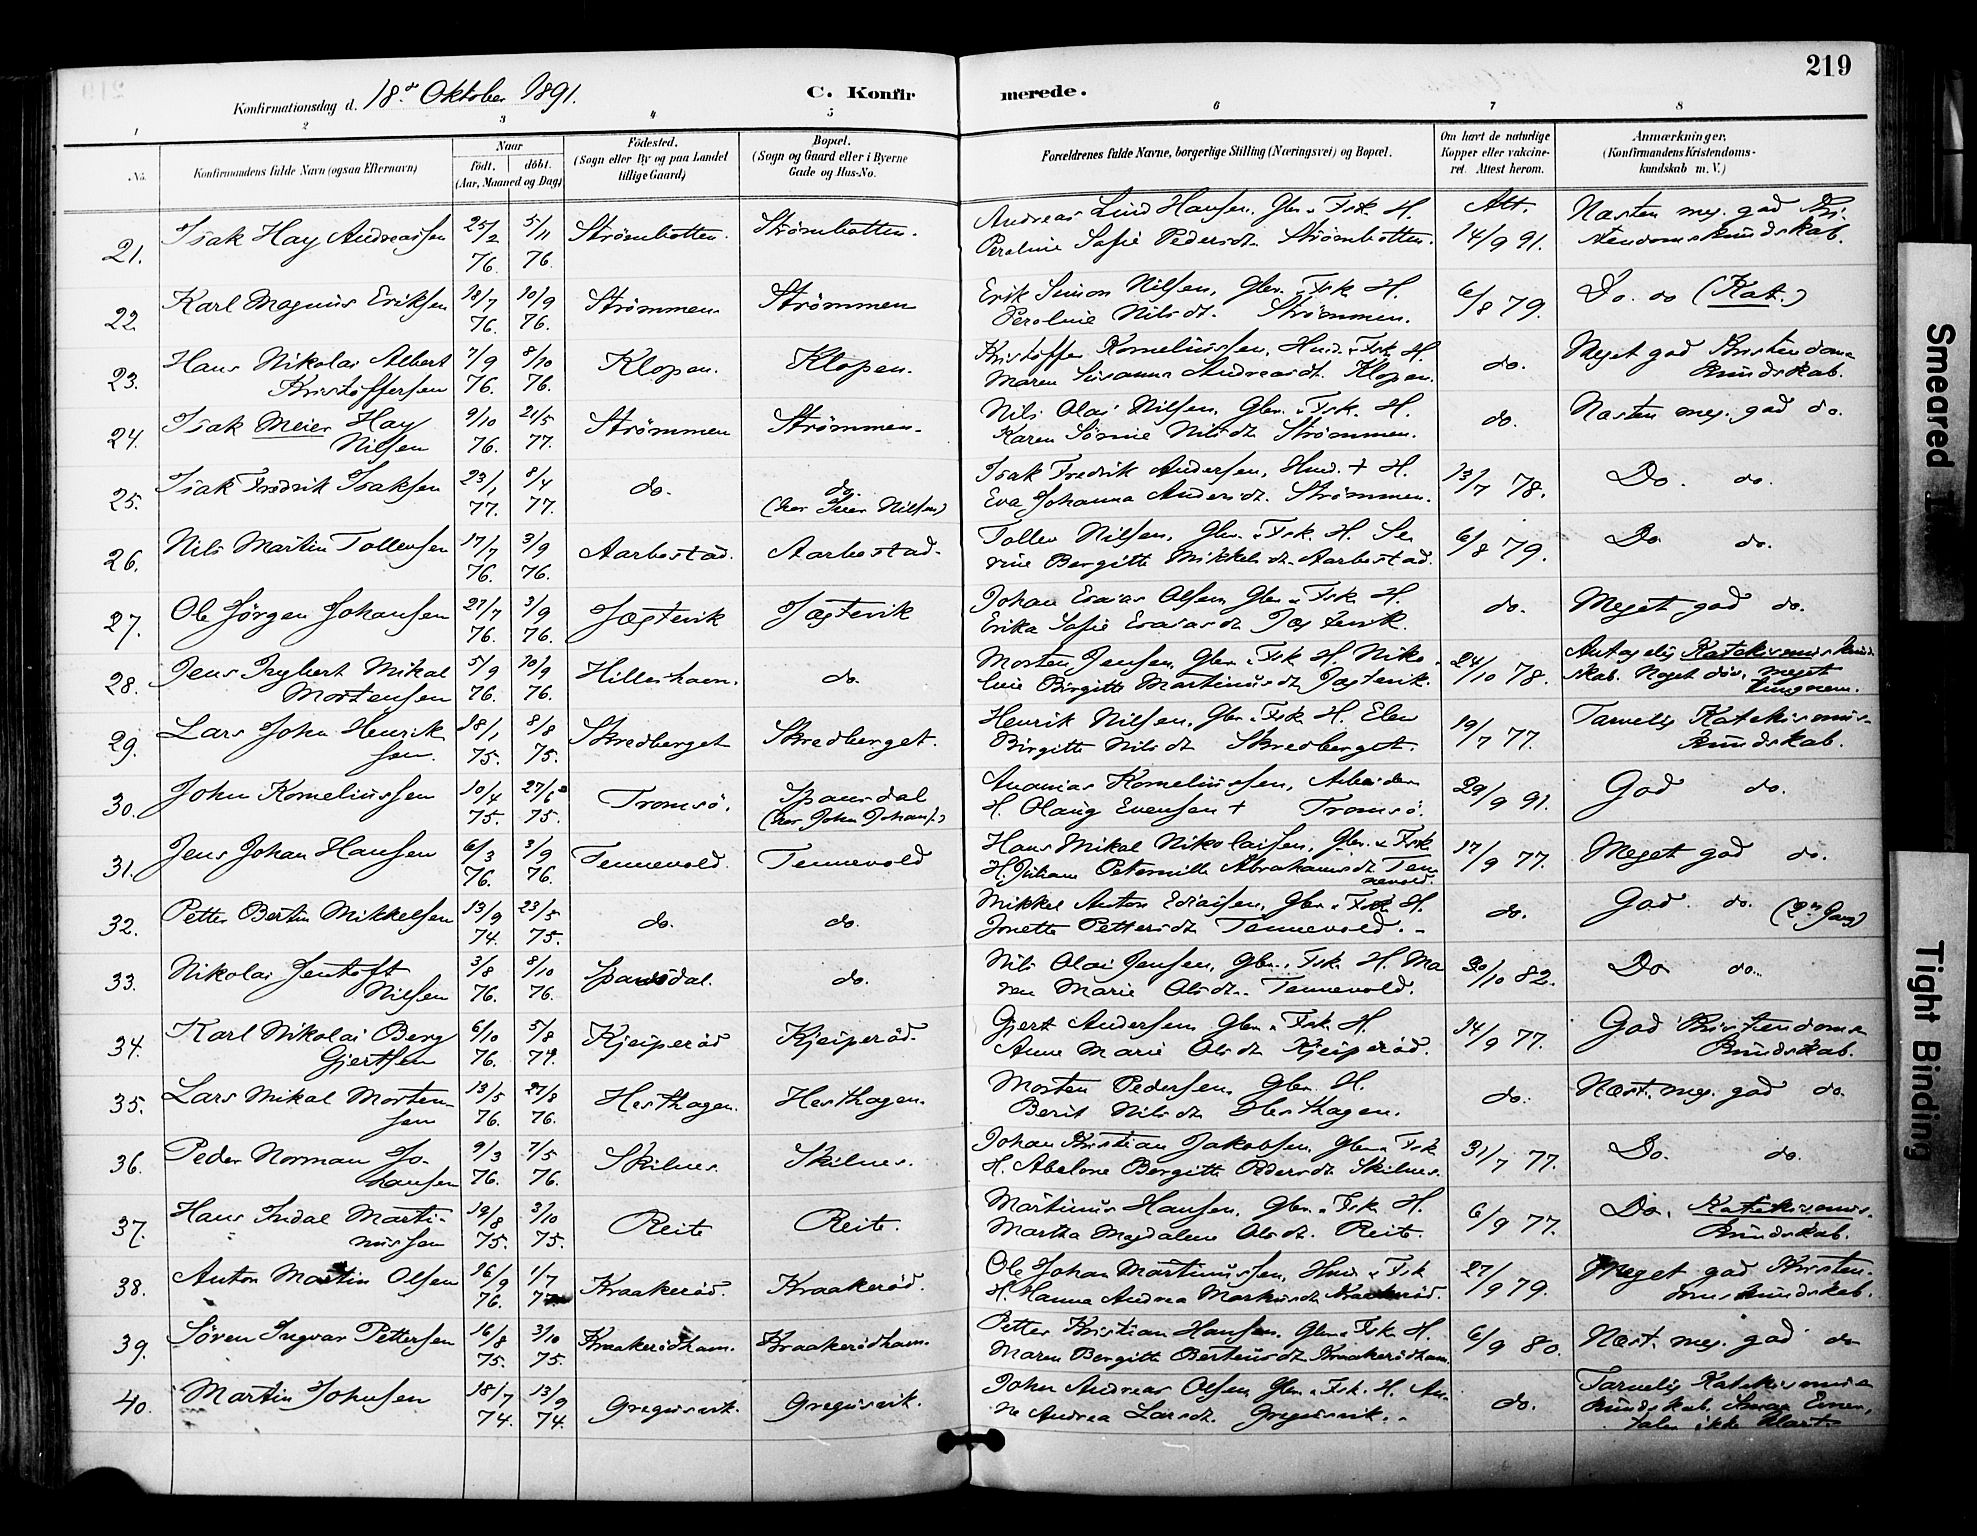 219
Konfirmationsdag d. 18de Oktober 1891.
C. Konfirmerede.
1 2 3 4 5 6 7 8
No. Konfirmandens fulde Navn (ogsaa Efternavn) Naar født. døbt. (Aar, Maaned og Dag) Fødested. (Sogn eller By og paa Landet tillige Gaard) Bopæl. (Sogn og Gaard eller i Byerne Gade og Hus-No. Forældrenes fulde Navne, borgerlige Stilling (Næringsvei) og Bopæl. Om havt de naturlige Kopper eller vakcineret. Attest herom. Anmærkninger. (Konfirmandens Kristendomskundskab m. V.)
21. Isak Hay Andreassen 25/2 76. 5/11 76. Strømbotten. Strømbotten. Andreas Lind Hansen, Gbr. & Fsk. H.
Peroline Sofie Pedersdt. Strømbotten. Att. 14/9 91. Næsten meg. god Kristendomskundskab.
22. Karl Magnus Eriksen 18/7 76. 10/9 76. Strømmen. Strømmen Erik Simon Nilsen, Gbr. & Fsk. H.
Peroline Nilsdt. Strømmen. 6/8 79. Do. do (Kat.)
23. Hans Nikolai Albert
Kristoffersen 7/9 76. 8/10 76. Klopen. Klopen. Kristoffer Korneliussen, Hmd. & Fsk. H.
Maren Susanna Andreasdt. Klopen. do. Meget god Kristendomskundskab.
24. Isak Meier Hay
Nilsen 9/10 76. 21/5 77. Strømmen Strømmen. Nils Olai Nilsen, Gbr. & Fsk. H.
Karen Sørine Nilsdt. Strømmen. do. Næsten meg. god do.
25. Isak Fredrik Isaksen 23/1 77. 8/4 77. do. do.
(hos Iver Nilsen) Isak Fredrik Andersen, Hmd. + H.
Eva Johanna Andersdt. Strømmen. 13/7 78. Do. do.
26. Nils Martin Tollevsen 17/7 76. 3/9 76. Aarbostad. Aarbostad. Tollev Nilsen, Gbr. & Fsk. H. Se
rine Bergitte Mikkelsdt. Aarbostad. 6/8 79. Do do.
27. Ole Jørgen Johansen 27/7 76. 3/9 76. Jægtevik Jægtevik Johan Esaias Olsen, Gbr. & Fsk. H.
Erika Sofie Esaiasdt. Jægtevik. do. Meget god do.
28. Jens Ingbert Mikal
Mortensen 5/9 76. 10/9 76. Hilleshavn. do. Morten Jensen, Gbr. & Fsk. H. Niko
line Birgitte Martinusdt. Jægtevik. 24/10 78. Antagelig Katekismuskund
skab. Noget døv, meget
tungnem.
29. Lars John Henrik
sen. 18/1 75. 8/8 75. Skredberget Skredberget. Henrik Nilsen, Gbr. & Fsk. H. Elen
Birgitte Nilsdt. Skredberget. 19/7 77. Tarvelig Katekismus-
kundskab.
30. John Korneliussen 10/4 75. 27/6 75. Tromsø. Spansdal
(hos John Johans.) Ananias Korneliussen, Arbeider
H. Olaug Evensen + Tromsø. 29/9 91. God do.
31. Jens Johan Hansen 6/3 76. 3/9 76. Tennevold. Tennevold Hans Mikal Nikolaisen, Gbr. & Fsk.
H. Juliane Peternille Abrahamsdt. Ten
nevold. 17/9 77. Meget god do.
32. Petter Bertin Mikkelsen 13/9 74. 23/5 75. do. do. Mikkel Anton Esaisen, Gbr. & Fsk. H.
Jonetta Pettersdt. Tennevold. do. God do. (2den Gang)
33. Nikolai Jentoft
Nilsen 3/8 76. 8/10 76. Spansdal. do. Nils Olai Jensen, Gbr. & Fsk. H. Ma
ren Marie Olsdt. Tennevold. 30/10 82. Do do.
34. Karl Nikolai Berg
Gjertsen 6/10 76. 5/8 77. Kjeiperød Kjeiperød. Gjert Andersen Gbr. & Fsk. H.
Anne Marie Olsdt. Kjeiperød. 14/9 77. God Kristendoms-
kundskab.
35. Lars Mikal Morten-
sen 13/5 76. 27/8 76. Hesthagen. Hesthagen. Morten Pedersen, Gbr. H.
Berit Nilsdt. Hesthagen. do. Næst. meg. god do.
36. Peder Norman Jo-
hansen 9/3 76. 7/5 76. Skilnes Skilnes. Johan Kristian Jakobsen, Gbr. & Fsk.
H. Abelone Bergitte Pedersdt. Skilnes. 31/7 77. Do. do.
37. Hans Indal Marti-
nussen 19/8 75. 3/10 75. Reite Reite. Martinus Hansen, Gbr. & Fsk. H.
Martha Magdalena Olsdt. Reite. 6/9 77. Do. Katekismus-
kundskab.
38. Anton Martin Olsen 16/9 76. 1/7 77. Kraakerød. Kraakerød. Ole Johan Martinussen, Hmd. & Fsk
H. Hanna Andrea Markusdt. Kraakerød. 27/9 79. Meget god Kristen-
domskundskab.
39. Søren Ingvar Pettersen 16/8 75. 3/10 75. Kraakerødhavn. Kraakerødhavn. Petter Kristian Hansen. Gbr. & Fsk. H.
Maren Bergitte Berteusdt. Kraakerødhavn. 6/9 80. Næst. meg. god do
40. Martin Johnsen 18/7 74. 13/9 74. Gregusvik. Gregusvik. John Andreas Olsen, Gbr. & Fsk. H. An-
ne Andrea Larsdt. Gregusvik. do. Tarvelig Katekismus-
kundskab. Smaa Evner,
taler ikke klart.
Smeared
Tight Binding